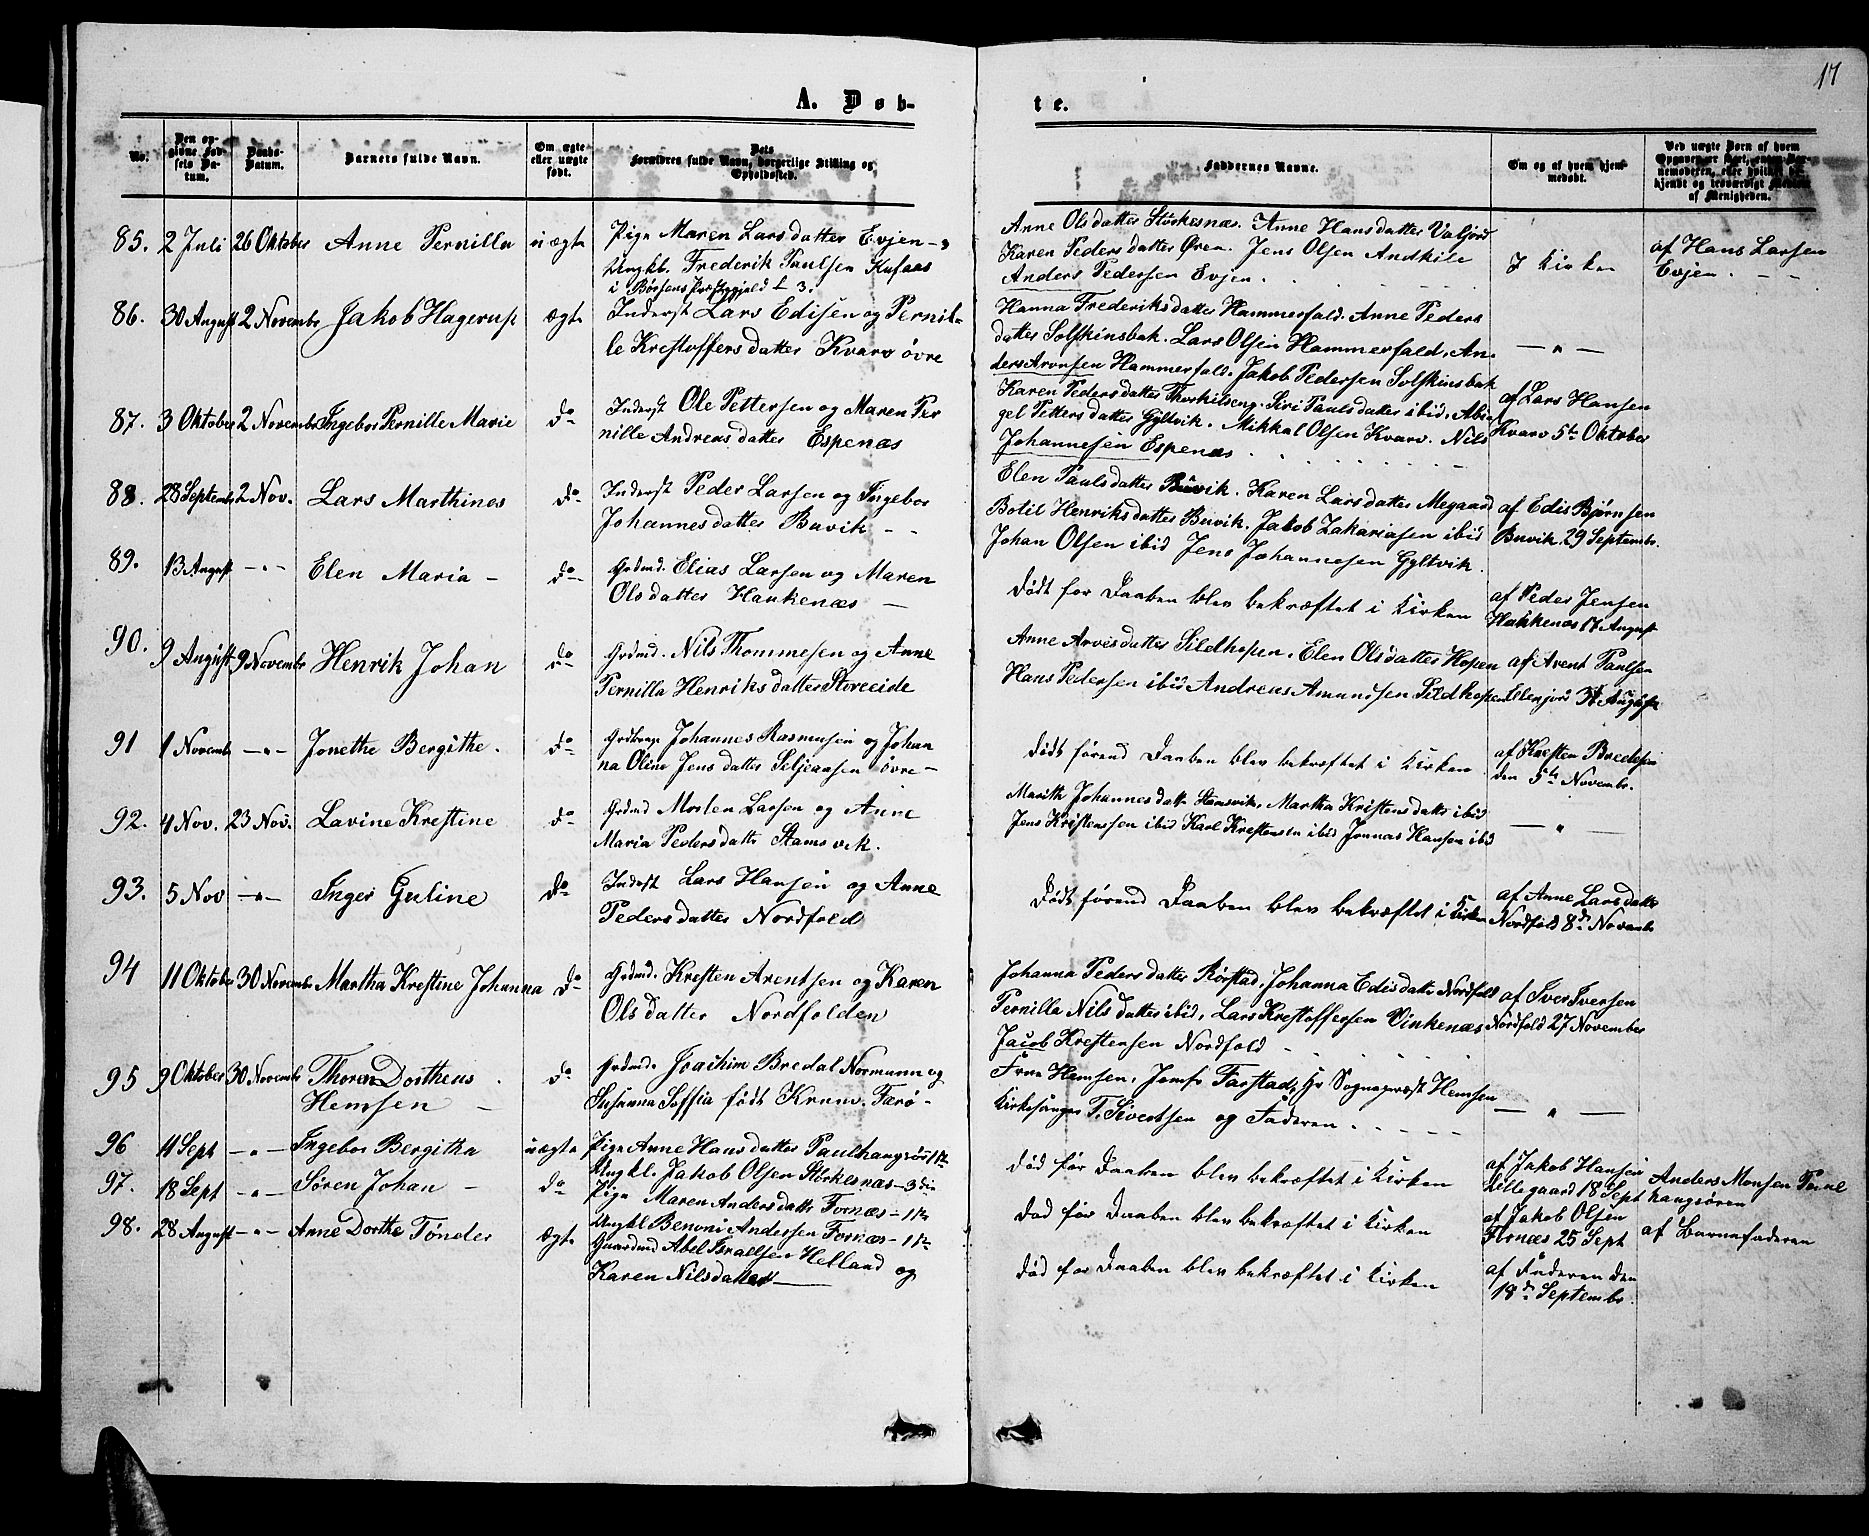 17
A. Døb-
te.
No.
Den op-
givne Fød-
sels Da-
tum.
Daabs-
Datum.
Barnets fulde Navn.
Om ægte
eller uægte
født.
Dets
Forældres fulde Navn, borgerlige Stilling og
Opholdssted.
Faddernes Navne.
Om og af hvem hjem-
medøbt.
Ved uægte Børn af hvem
Opgaven er skeet, enten Bar-
nemoderen, eller hvilket be-
kjendt og troværdigt Medlem
af Menigheden.
85. 2 Juli 26 Oktober Anne Pernilla uægte
Pige Maren Larsdatter Evjen - 3
Ungkl. Frederik Paulsen Kufaas
i Børsens Præstegjeld L 3.
Anne Olsdatter Størkesnæs. Anne Hansdatter Valjord
Karen Pedersdatter Øren. Jens Olsen Andkile
Anders Pedersen Evjen.
I Kirken
af Hans Larsen
Evjen.
86. 30 August 2 Novembr Jakob Hagerup ægte
Inderst Lars Edisen og Pernil-
le Krestoffersdatter Kvarv øvre
Hanna Frederiksdatter Hammerfald. Anne Peders
datter Solskinsbak. Lars Olsen Hammerfald, An-
ders Aronsen Hammerfald. Jakob Pedersen Solskinsbak
— " —
87. 3 Oktober 2 November Ingebor Pernille Marie do
Inderst Ole Pettersen og Maren Per
nille Andreasdatter Espenæs
Karen Pedersdatter Thorkilseng. Siri Paulsdatter ibid, Abi
gel Pettersdatter Gyltvik. Mikkal Olsen Kvarv. Nils
Johannesen Espenæs
af Lars Hansen
Kvarv 5te Oktober
88. 28 Septembr 2 Nov. Lars Marthinus do
Inderst Peder Larsen og Ingebor
Johannesdatter Buvik - -
Elen Paulsdatter Buvik. Karen Larsdatter Megaard
Botil Henriksdatter Buvik. Jakob Zakariasen ibid
Johan Olsen ibid Jens Johannesen Gyltvik.
af Edis Bjørnsen
Buvik 29 Septembr.
89. 13 August - " - Elen Maria - do
Grdmd. Elias Larsen og Maren
Olsdatter Haukenæs —
Født før Daaben blev bekræftet i Kirken
af Peder Jensen
Hakkenæs 17 August
90. 9 August 9 Novembr Henrik Johan do
Grdmd. Nils Thommesen og Anne
Pernilla Henriksdatter Storeeide
Anne Arvesdatter Sildhopen. Elen Olsdatter Hopen
Hans Pedersen ibid Andreas Amundsen Sildhopen
af Arent Paulsen
Ellenjord 31 August
91 1 Novemb - " - Jonetha Bergithe. do
Johannes Rasmusen og Johan
na Oline Jensdatter Seljeaasen øvre -
Født førend Daaben blev bekræftet i Kirken
af Kresten Bredesen
den 5te Novembr.
92. 4 Nov. 23 Nov. Lavine Krestine do
Grdmd Morten Larsen og Anne
Maria Pedersdattr Stamsvik.
Marith Johannesdattr Stamsvik, Martha Kristensdattr ibid
Jens Kristenssen ibid Karl Krestensen ibid Jonnas Hansen ibid
— " —
93. 5 Nov - " - Inger Guline do
Inderst Lars Hansen og Anne
Pedersdatter Nordfold
Født førend Daaben blev bekræftet i Kirken
af Anne Larsdattr
Nordfold 8de Novembr
94 11 Oktober 30 Novembr Martha Krestine Johanna do
Grdmd. Kresten Arentsen og Karen
Olsdatter Nordfolden
Johanna Pedersdatter Rørstad, Johanna Edisdattr Nordfold
Pernilla Nilsdatter ibid, Lars Krestoffersen Vinkenæs
Jacob Krestensen Nordfold -
af Iver Iversen
Nordfold 27 November
95 9 Oktober 30 Novembr Thoren Dortheus
Hemsen - do
Grdmd. Joachim Bredal Normann og
Susanna Soffia født Krum. Færø -
Frue Hemsen, Jomfr Farstad, Hr Sognepræst Hemsen
Kirkesanger T. Sivertsen og Faderen.
— " —
96 11 Sept - " - Ingebor Bergitha uægte
Pige Anne Hansdatter - 1te
Ungkl. Jakob Olsen Størkesnæs - 3die
Død før Daaben blev bekræftet i Kirken
af Jakob Hansen
Lillegaard 18 Sept
Anders Monsen
97. 18 Sept - " - Søren Johan - do
Pige Maren Andersdattr Fornæs - 1te
Ungkl Benoni Andersen Fornæs - 1te
Død før Daaben blev bekræftet i Kirken
af Jakob Olsen
Fornæs 25 Sept
af Barnefaderen
98. 28 August - " - Anne Dorthe Tønder ægte
Gaardmd Abel Israelsen Helland og
Karen Nilsdatter —
Død før Daaben blev bekræftet i Kirken
af Faderen den
18de Septembr.